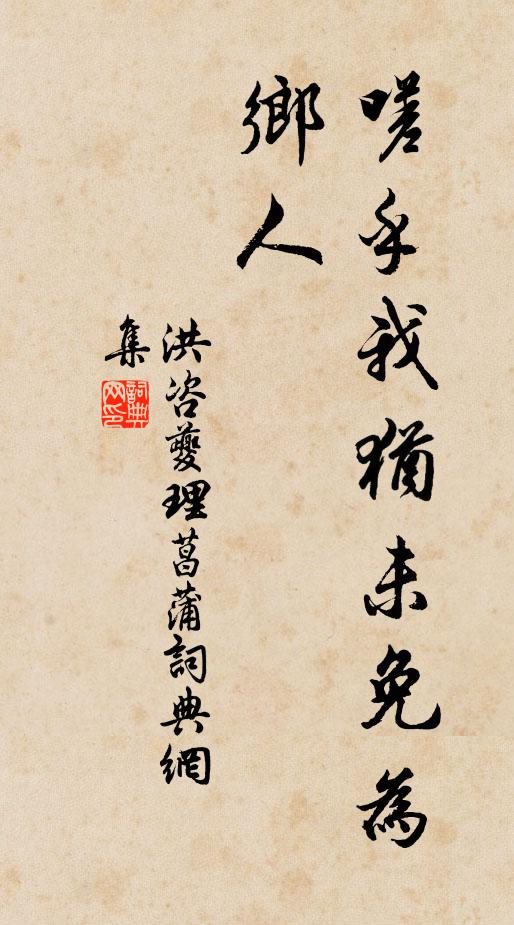 嗟乎我猶未免為
鄉人
洪咨夔理菖蒲詞典網
集
詞典
网印